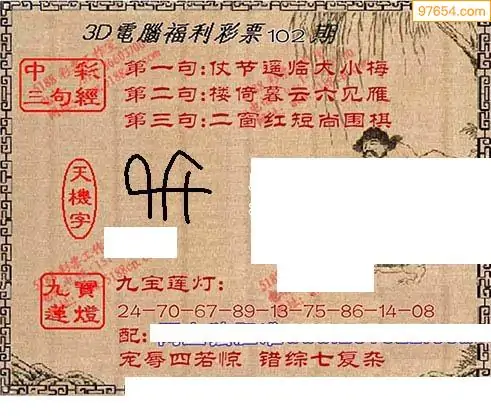 97654.com
3D電腦福利彩票102期
中彩
三句經
第一句:仗节遥临大小梅
第二句:楼倚暮云六见雁
第三句:二窗红短尚围棋
天機字
九寶
蓮燈
九宝莲灯:
24-70-67-89-13-75-86-14-08
配:
宠辱四若惊 错综七复杂